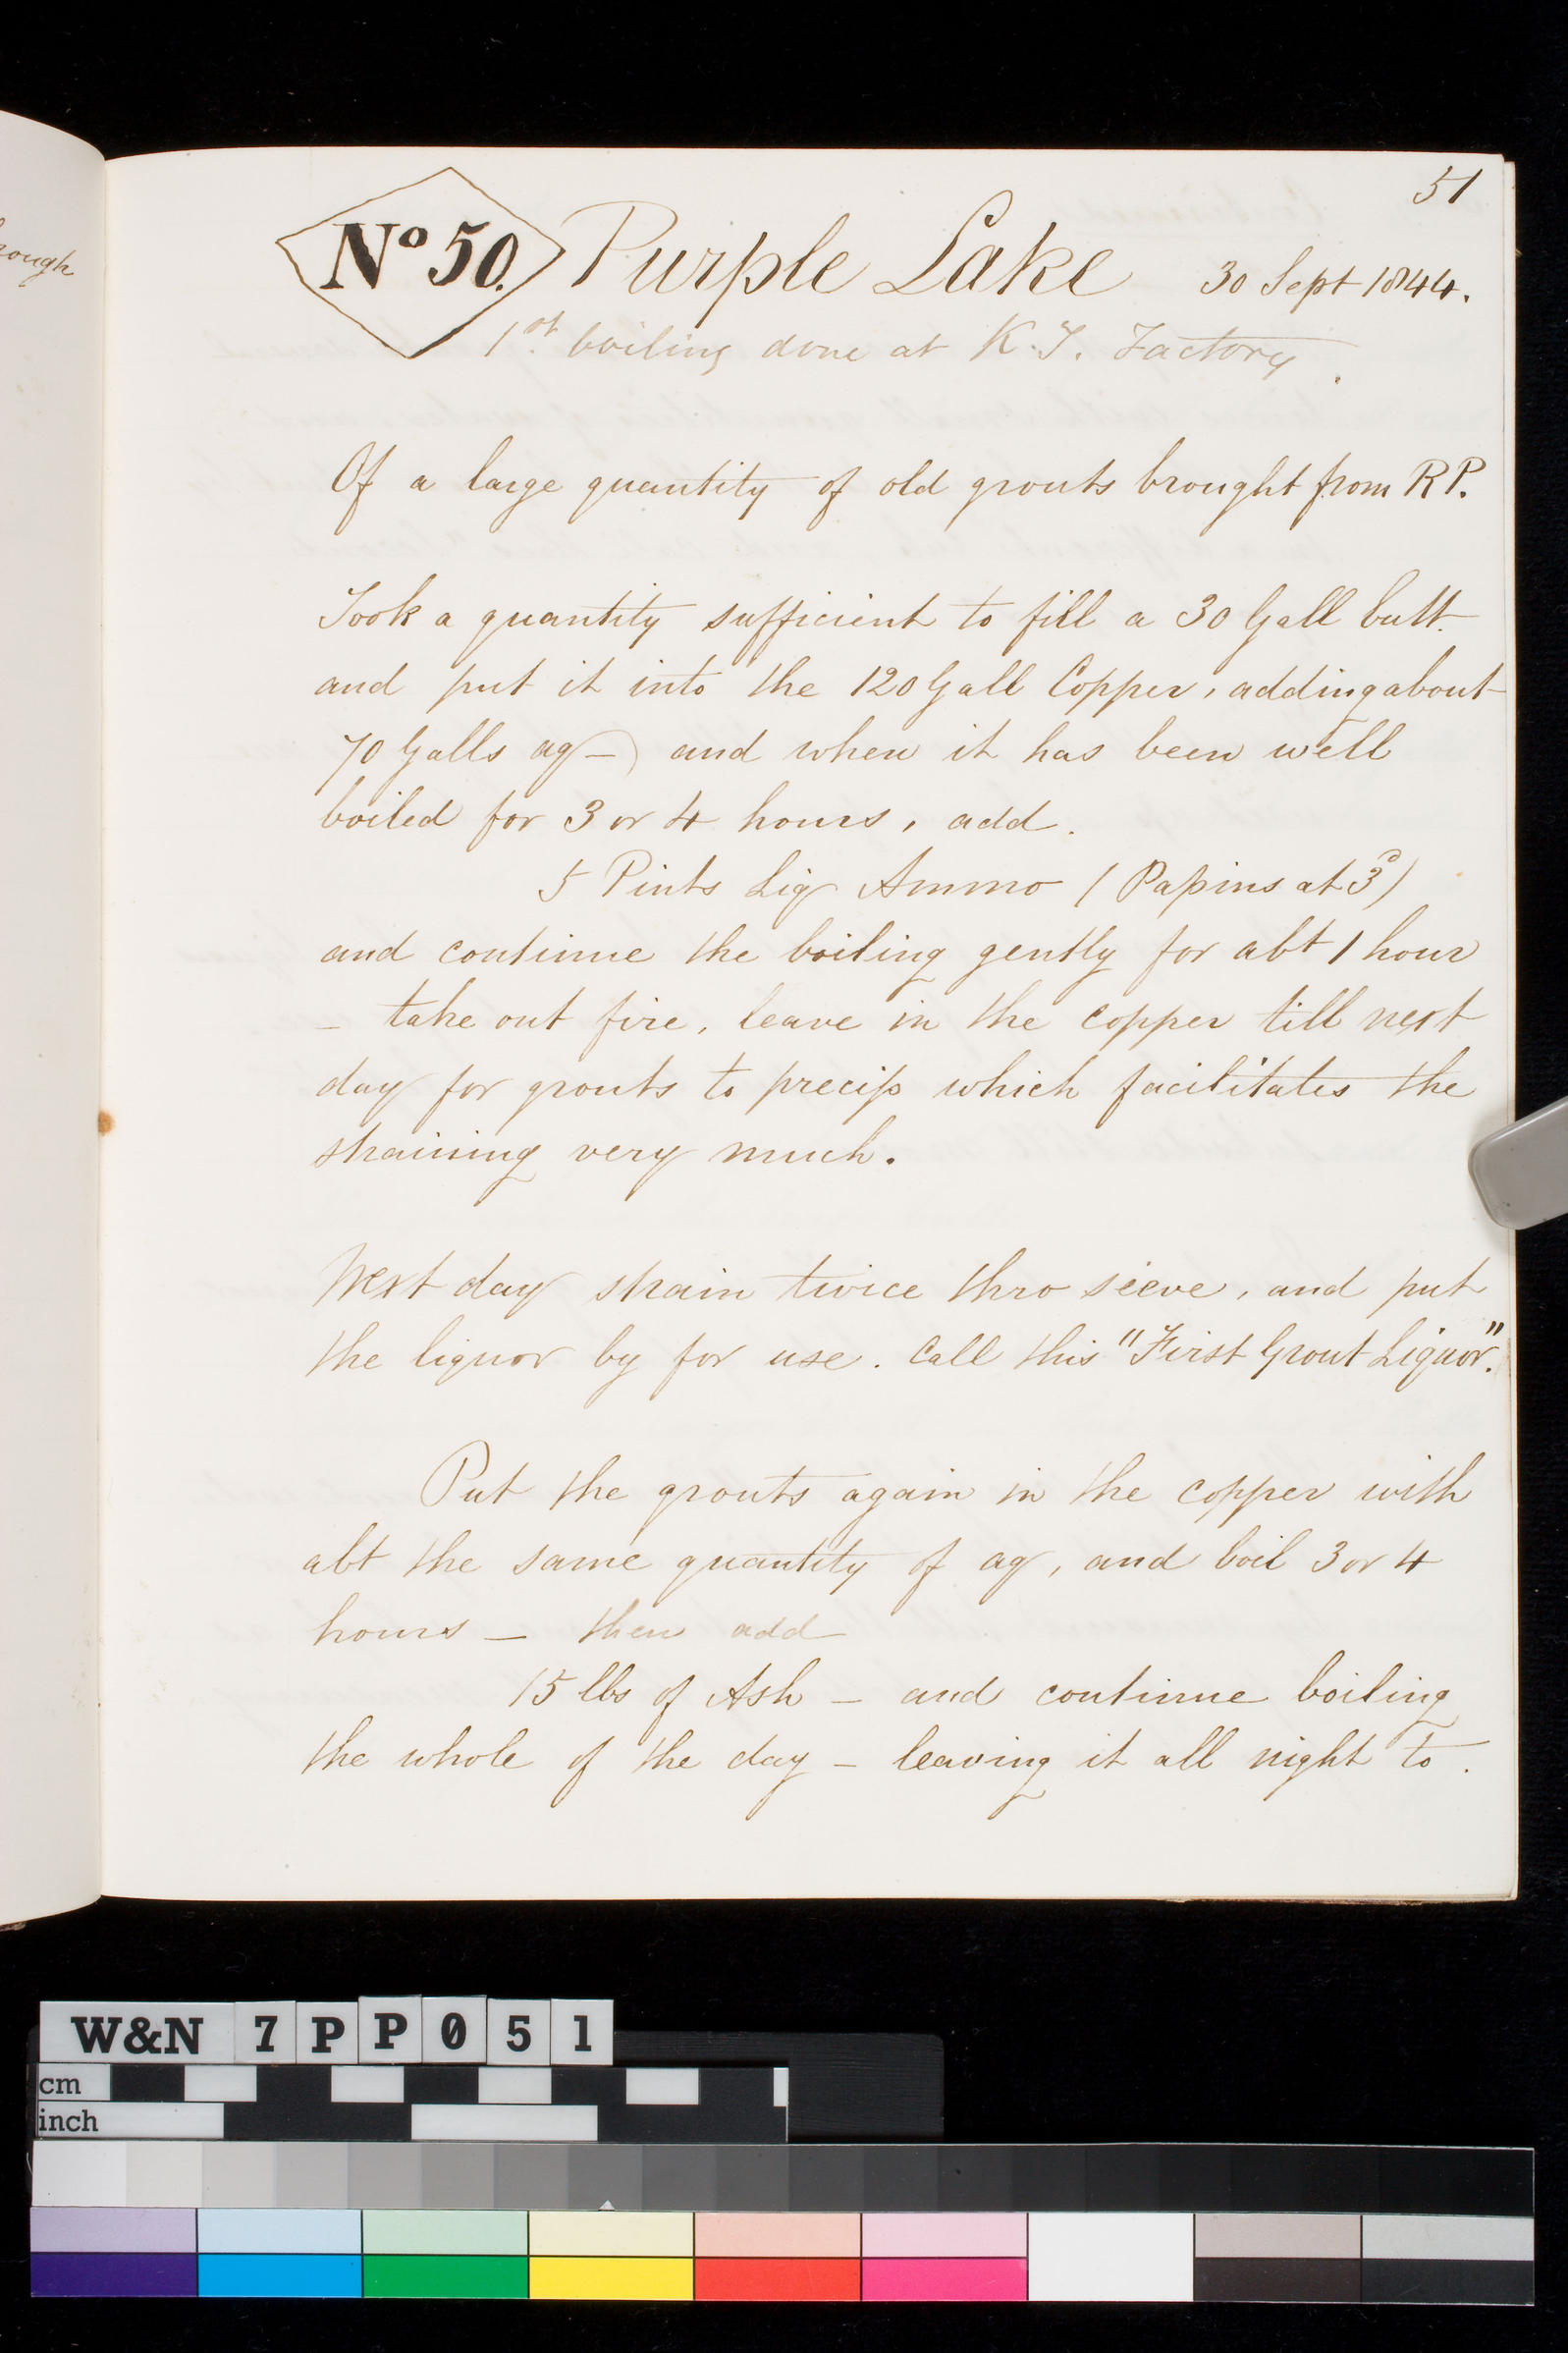 ough
51
No 50. Purple Lake 30 Sept 1844.
1st. boiling done at K.T. Factory.
Of a large quantity of old grouts brought from R P.
Took a quantity sufficient to fill a 30 Gall butt
and put it into the 120 Gall Copper, adding about
70 Galls aq — and when it has been well
boiled for 3 or 4 hours, add.
5 Pints Liq Ammo (Papins at 3)
and continue the boiling gently for abt 1 hour
— take out fire, leave in the copper till next
day for grouts to precip which facilitates the
straining very much.
Next day strain twice thro sieve, and put
the liquor by for use. Call this "First Grout Liquor."
Put the grouts again in the copper with
abt the same quantity of aq, and boil 3 or 4
hours — then add
15 lbs of Ash — and continue boiling
the whole of the day — leaving it all night to.
W&N 7 P P 0 5 1
cm
inch